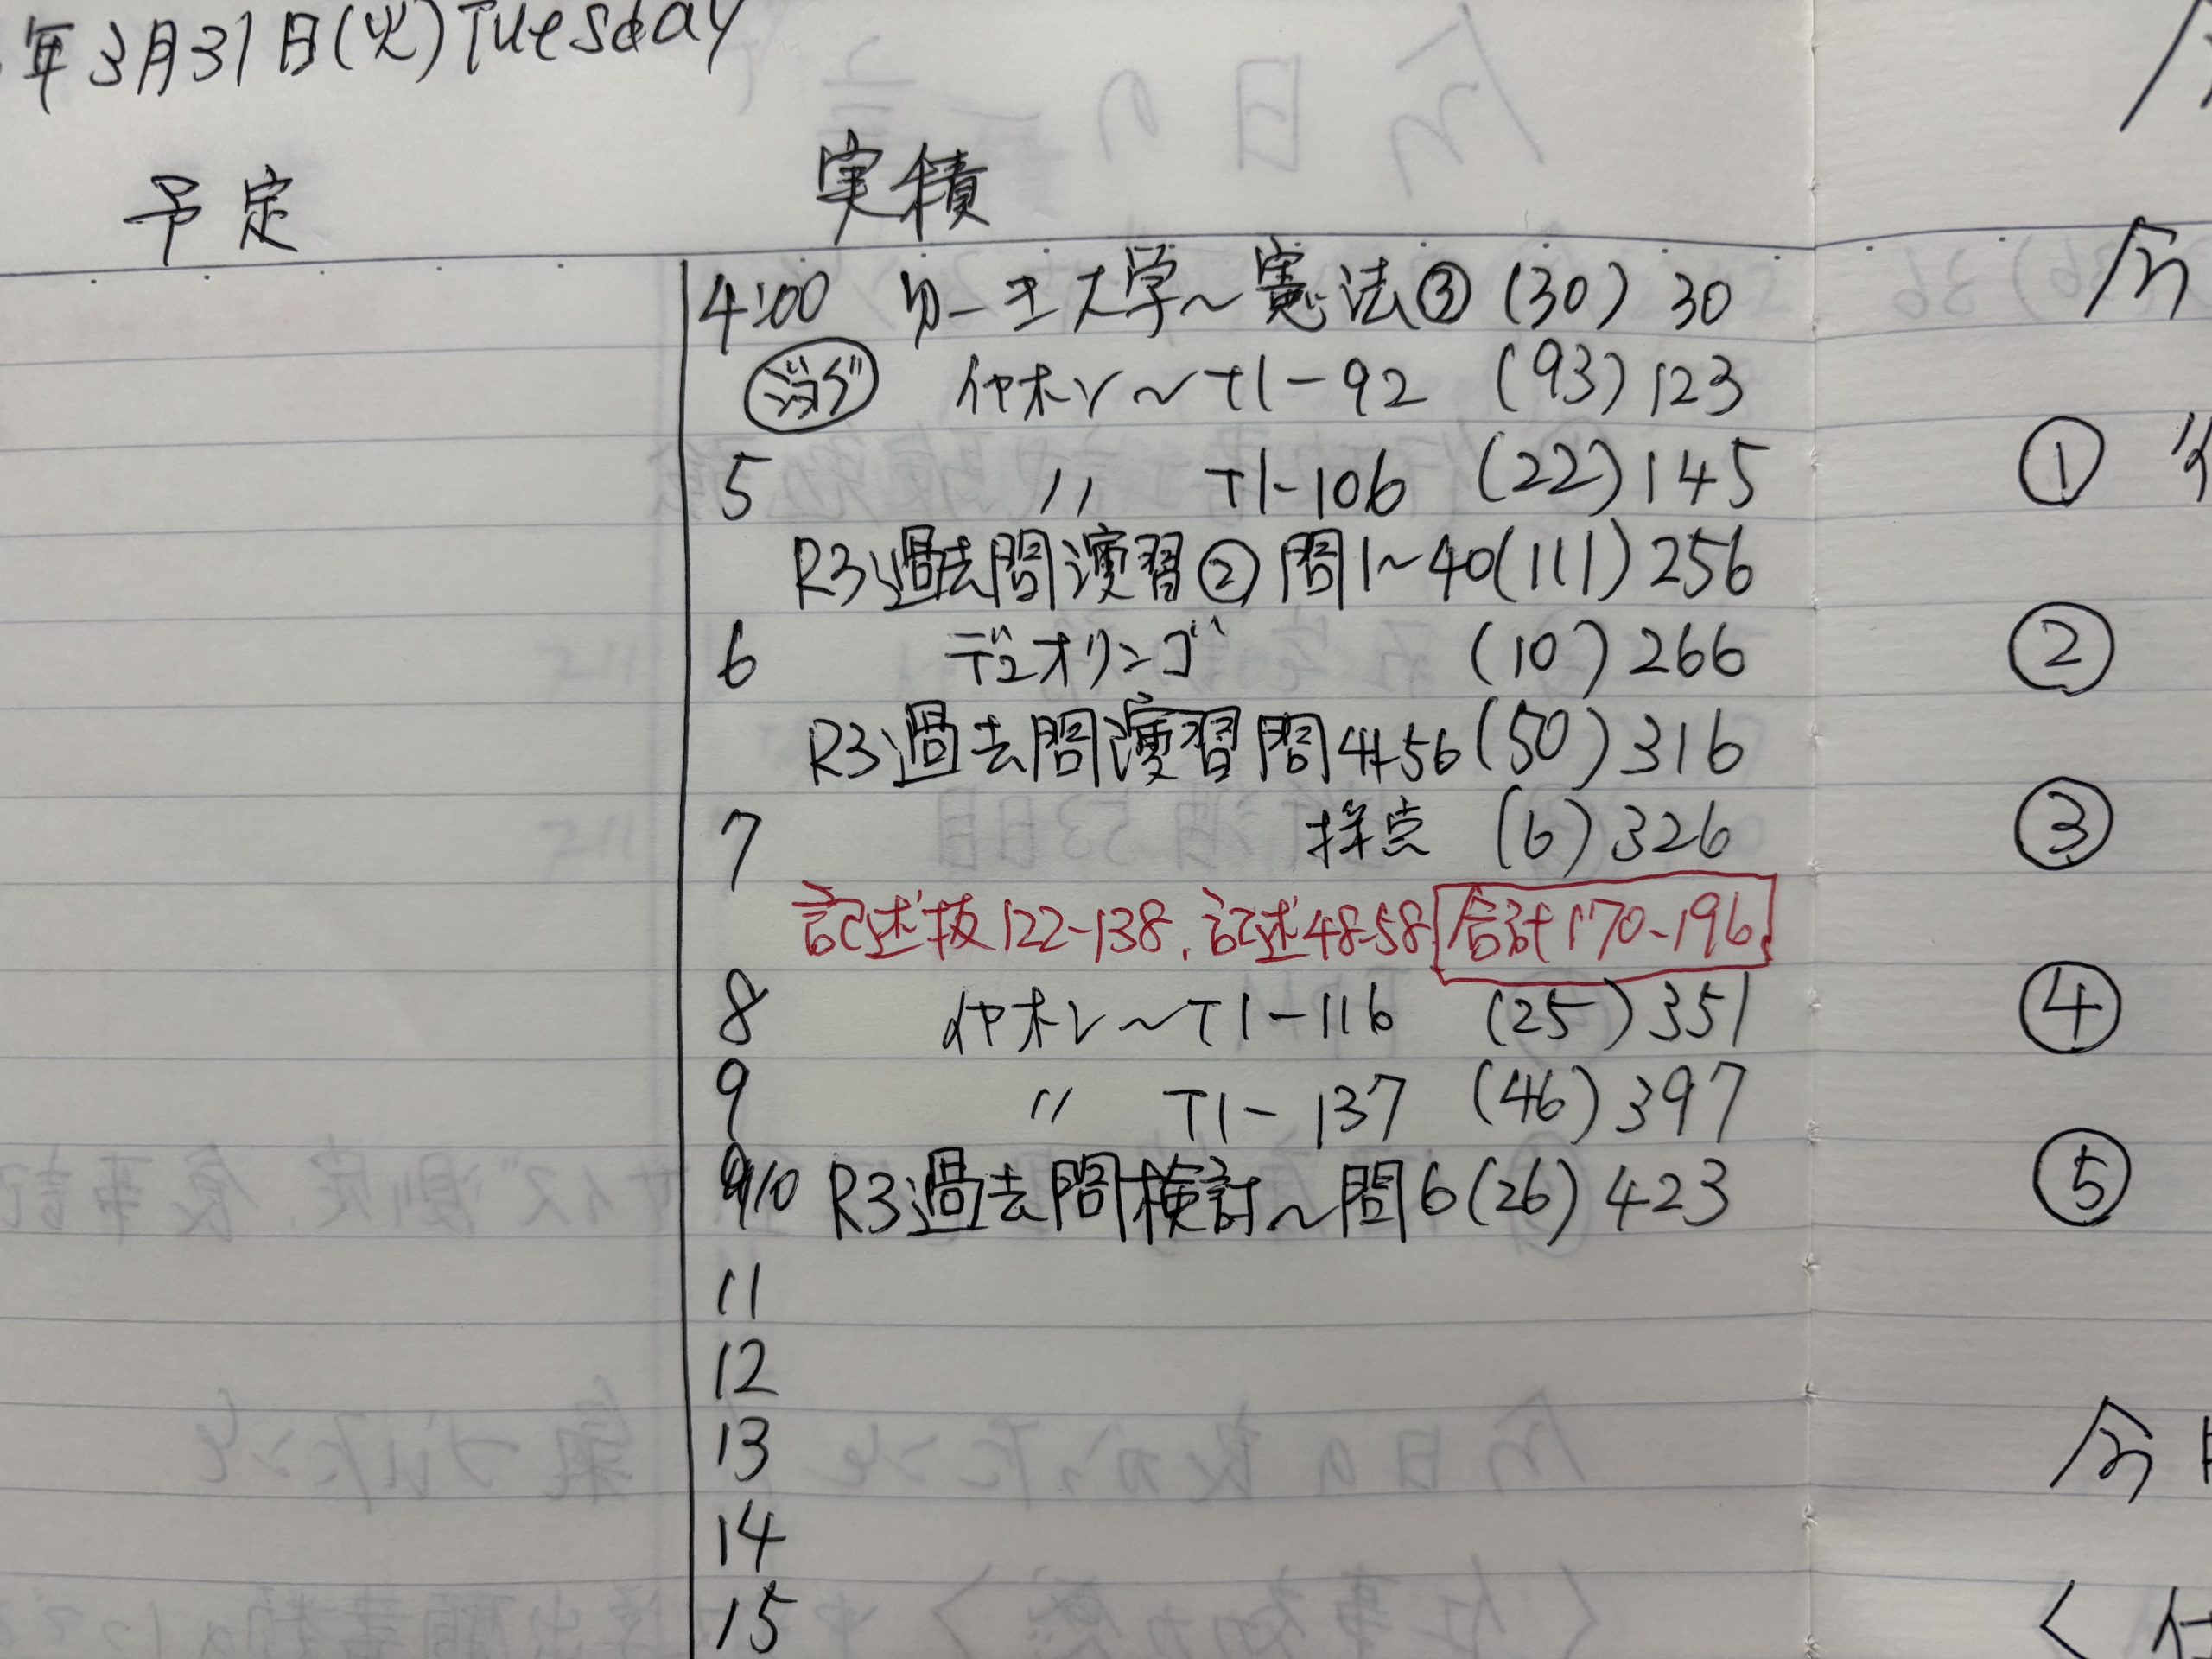 年3月31日(火)Tuesday
予定
実績
4:00 ゆーき大学～憲法③ (30) 30
ジョグ イヤホン～T1-92 (93) 123
5 〃 T1-106 (22) 145
R3過去問演習② 問1～40(111) 256
6 デュオリンゴ (10) 266
R3過去問演習 問41-56(50) 316
7 採点 (6) 326
記述抜122-138, 記述48-58 合計170-196
8 イヤホン～T1-116 (25) 351
9 〃 T1-137 (46) 397
10 R3過去問検討～問6(26) 423
11
12
13
14
15
今
①
②
③
④
⑤
今日
〈仕